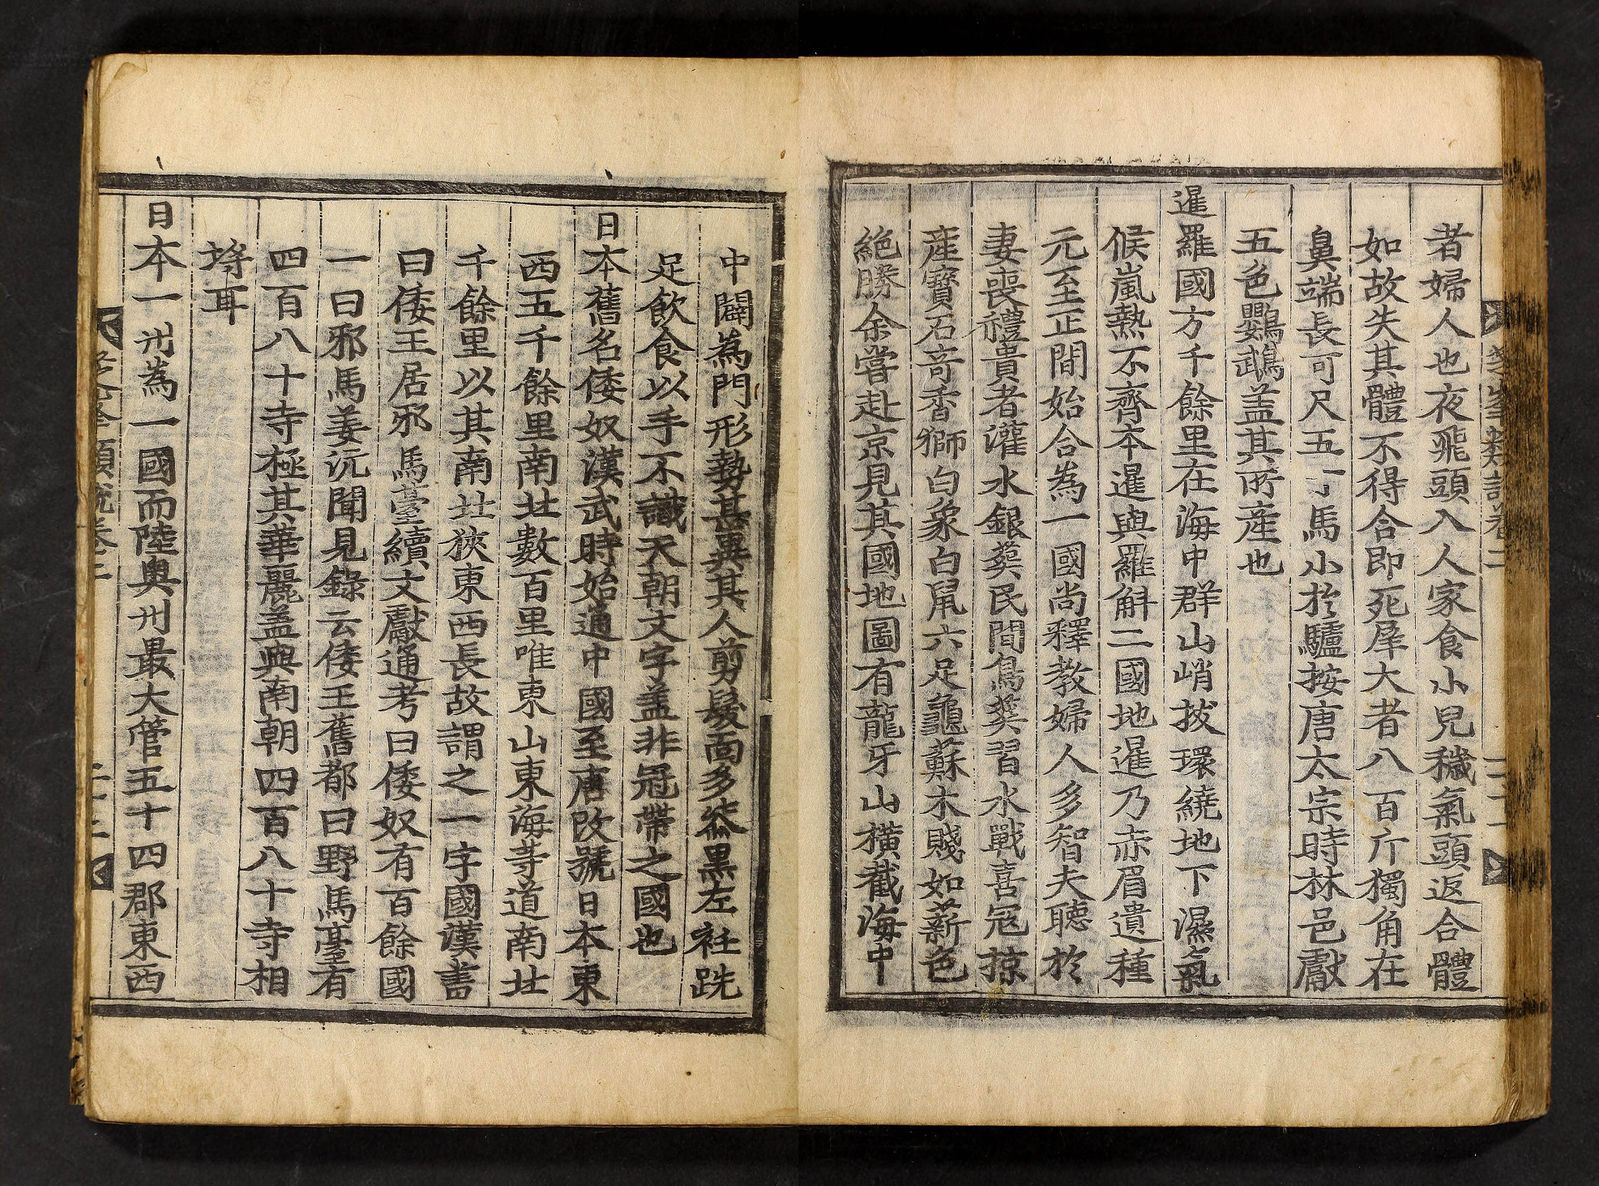 者婦人也夜飛頭入人家食小兒穢氣頭返合體
如故失其體不得合即死犀大者八百斤獨角在
鼻端長可尺五丁馬小於驢按唐太宗時林邑獻
五色鸚鵡盖其所産也
暹羅國方千餘里在海中群山峭拔環繞地下濕氣
候嵐熱不齊本暹與羅斛二國地暹乃赤眉遺種
元至正間始合為一國尚釋教婦人多智夫聽於
妻喪禮貴者灌水銀葬民間鳥葬習水戰喜寇掠
産寶石奇香獅白象白鼠六足龜蘇木賤如薪色
絶勝余嘗赴京見其國地圖有龍牙山橫截海中
芝峯類說卷二
二十二
中闢為門形勢甚異其人剪髮面多黑左衽跣
足飮食以手不識天朝文字盖非冠帶之國也
日本舊名倭奴漢武時始通中國至唐改號日本東
西五千餘里南北數百里唯東山東海等道南北
千餘里以其南北狹東西長故謂之一字國漢書
曰倭王居邪馬臺續文獻通考曰倭奴有百餘國
一曰邪馬姜沆聞見錄云倭王舊都曰野馬臺有
四百八十寺極其華麗盖與南朝四百八十寺相
埒耳
日本一州為一國而陸奧州最大管五十四郡東西
芝峯類說卷二
二十二